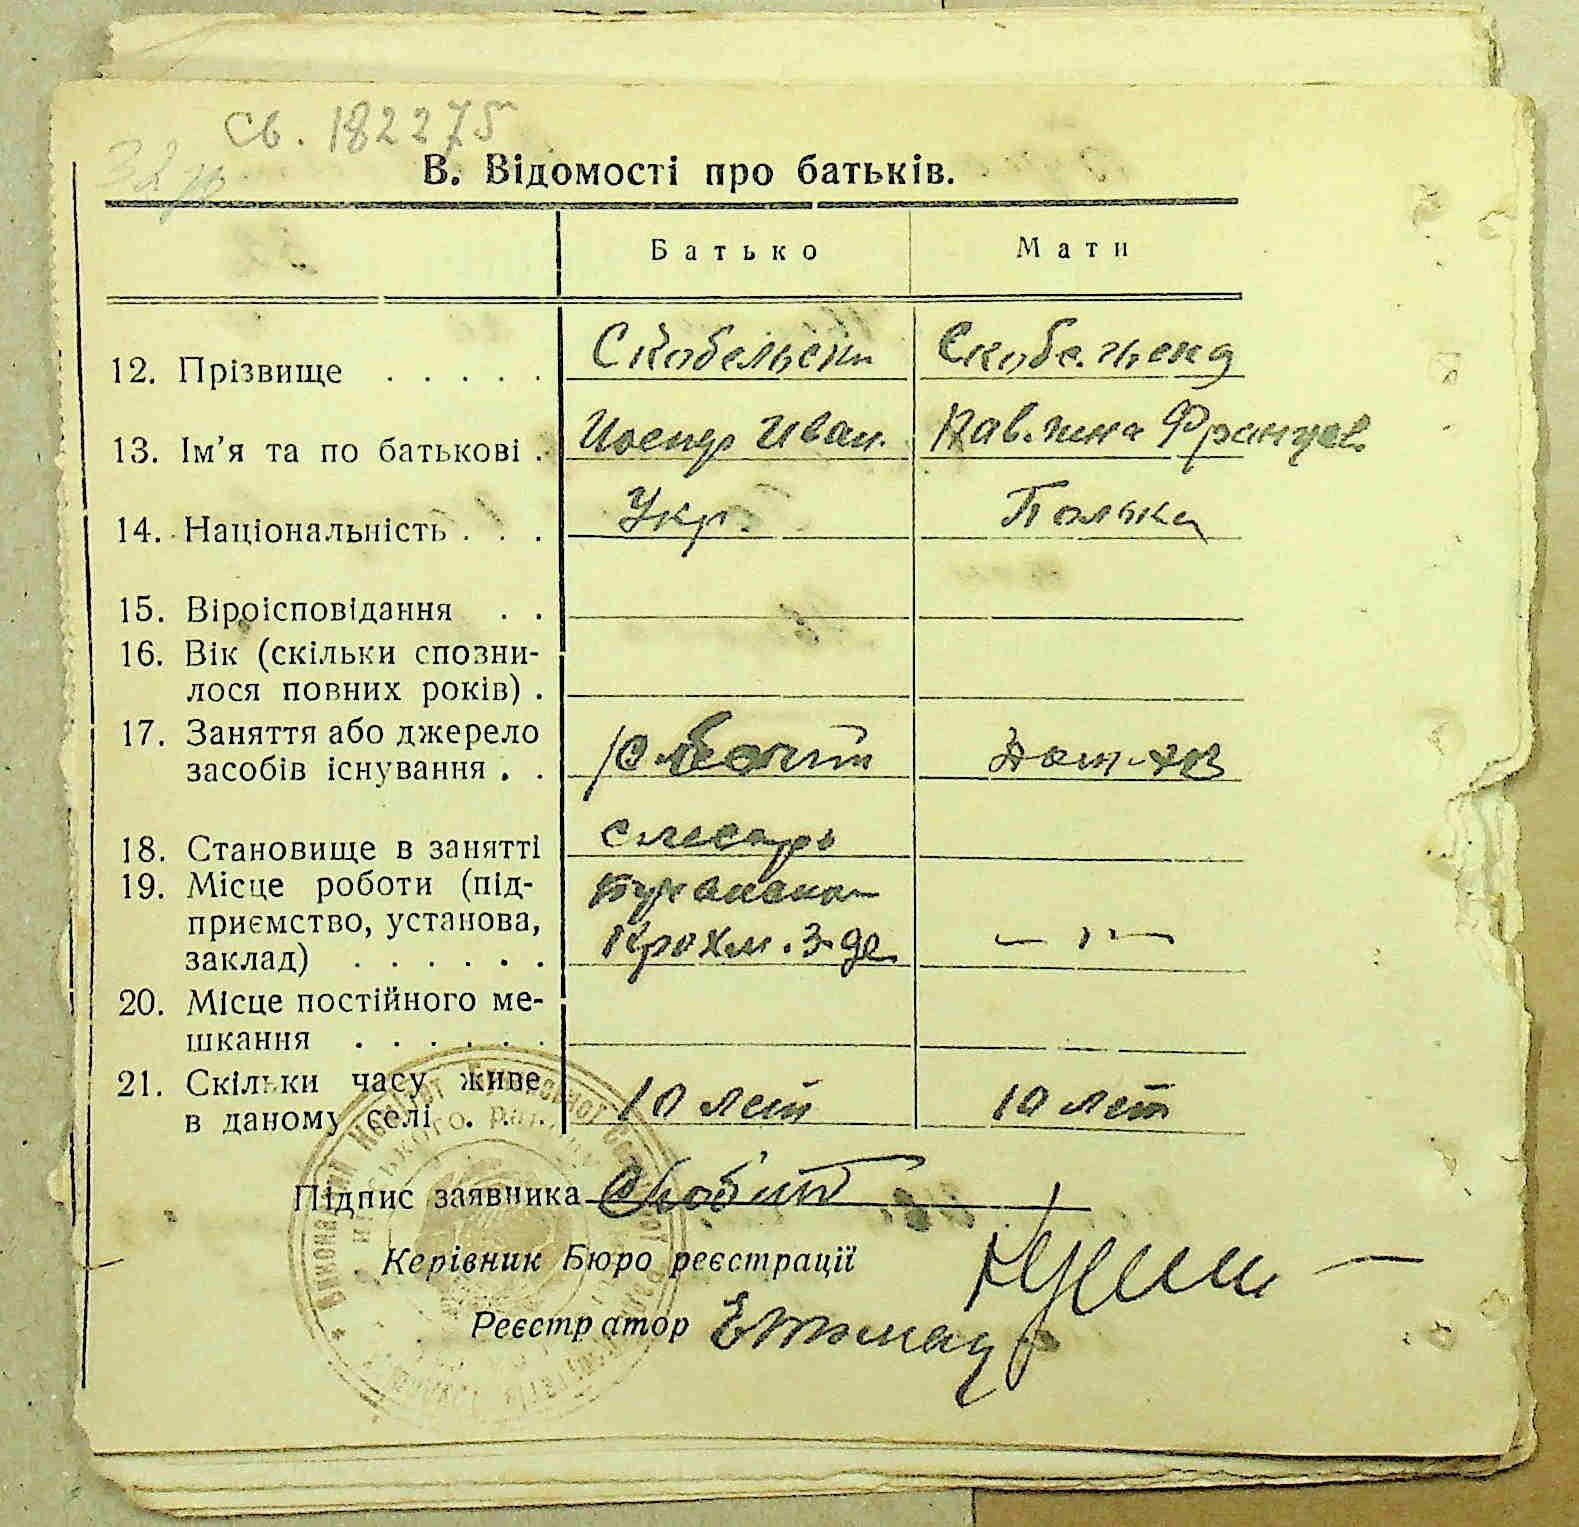 Св. 182275
32
В. Відомості про батьків.
Батько Мати
12. Прізвище . . . . . Скобельски Скобельска
13. Ім'я та по батькові . Иосиф Иван. Павлина Францев.
14. Національність . . . Укр. Полька
15. Віроісповідання . .
16. Вік (скільки спозни-
лося повних років) .
17. Заняття або джерело
засобів існування . .
18. Становище в занятті слесарь
19. Місце роботи (під-
приємство, установа,
заклад) . . . . . . Крохм. З-де — " —
20. Місце постійного ме-
шкання . . . . . .
21. Скільки часу живе
в даному селі . . . 10 лет 10 лет
Підпис заявника
Керівник Бюро реєстрації
Реєстратор